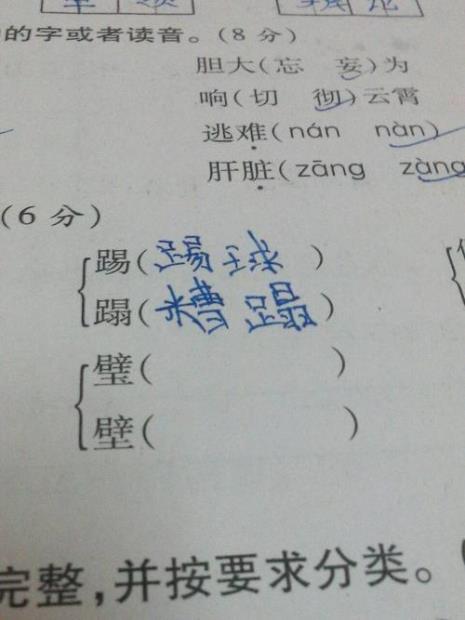 的字或者读音。(8 分)
胆大(忘 妄)为
响(切 彻)云霄
逃难(nán nàn)
肝脏(zāng zàng
(6 分)
踢(踢球)
蹋(糟蹋)
璧( )
壁( )
完整,并按要求分类。